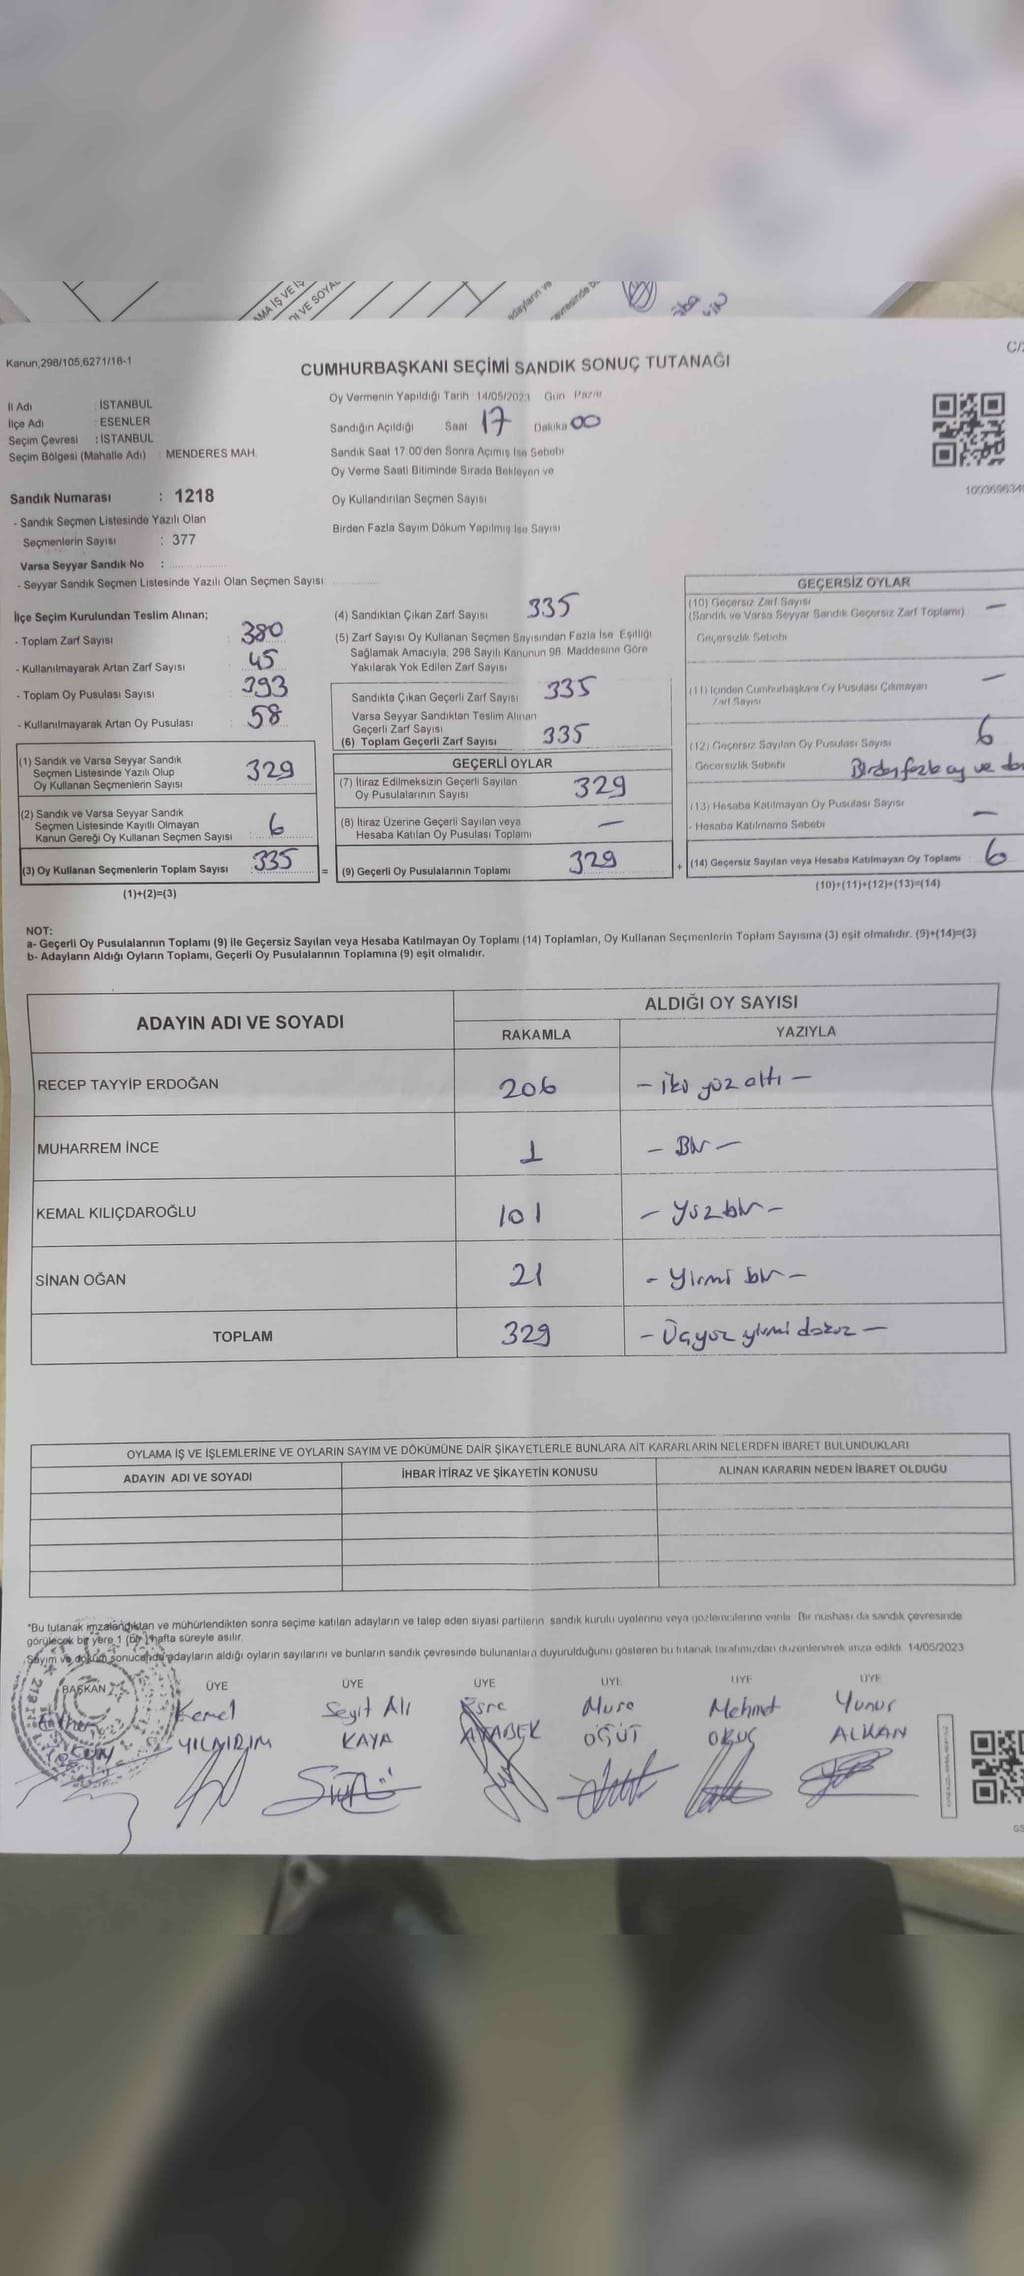 AMA İŞ VE İŞ
I VE SOYA
adayların ve
çevresinde b
Kanun;298/105;6271/18-1
C/2
CUMHURBAŞKANI SEÇİMİ SANDIK SONUÇ TUTANAĞI
İl Adı : İSTANBUL
İlçe Adı ESENLER
Seçim Çevresi : İSTANBUL
Seçim Bölgesi (Mahalle Adı) : MENDERES MAH.
Oy Vermenin Yapıldığı Tarih 14/05/2023 Gün Pazar
Sandığın Açıldığı Saat 17 Dakika 00
Sandık Saat 17:00'den Sonra Açımış İse Sebebi
Oy Verme Saati Bitiminde Sırada Bekleyen ve
Oy Kullandırılan Seçmen Sayısı
Birden Fazla Sayım Döküm Yapılmış İse Sayısı
Sandık Numarası : 1218
- Sandık Seçmen Listesinde Yazılı Olan
Seçmenlerin Sayısı : 377
Varsa Seyyar Sandık No :
- Seyyar Sandık Seçmen Listesinde Yazılı Olan Seçmen Sayısı
İlçe Seçim Kurulundan Teslim Alınan;
- Toplam Zarf Sayısı 380
- Kullanılmayarak Artan Zarf Sayısı 45
- Toplam Oy Pusulası Sayısı 393
- Kullanılmayarak Artan Oy Pusulası 58
(1) Sandık ve Varsa Seyyar Sandık
Seçmen Listesinde Yazılı Olup
Oy Kullanan Seçmenlerin Sayısı 329
(2) Sandık ve Varsa Seyyar Sandık
Seçmen Listesinde Kayıtlı Olmayan
Kanun Gereği Oy Kullanan Seçmen Sayısı : 6
(3) Oy Kullanan Seçmenlerin Toplam Sayısı : 335
(1)+(2)=(3)
(4) Sandıktan Çıkan Zarf Sayısı 335
(5) Zarf Sayısı Oy Kullanan Seçmen Sayısından Fazla İse Eşitliği
Sağlamak Amacıyla; 298 Sayılı Kanunun 98. Maddesine Göre
Yakılarak Yok Edilen Zarf Sayısı
Sandıkta Çıkan Geçerli Zarf Sayısı 335
Varsa Seyyar Sandıktan Teslim Alınan
Geçerli Zarf Sayısı
(6) Toplam Geçerli Zarf Sayısı 335
GEÇERLİ OYLAR
(7) İtiraz Edilmeksizin Geçerli Sayılan
Oy Pusulalarının Sayısı 329
(8) İtiraz Üzerine Geçerli Sayılan veya
Hesaba Katılan Oy Pusulası Toplamı —
= (9) Geçerli Oy Pusulalarının Toplamı 329 +
GEÇERSİZ OYLAR
(10) Geçersiz Zarf Sayısı —
(Sandık ve Varsa Seyyar Sandık Geçersiz Zarf Toplamı)
Geçersizlik Sebebi
(11) İçinden Cumhurbaşkanı Oy Pusulası Çıkmayan
Zarf Sayısı —
(12) Geçersiz Sayılan Oy Pusulası Sayısı 6
- Geçersizlik Sebebi Birden fazla oy ve
(13) Hesaba Katılmayan Oy Pusulası Sayısı —
- Hesaba Katılmama Sebebi
(14) Geçersiz Sayılan veya Hesaba Katılmayan Oy Toplamı 6
(10)+(11)+(12)+(13)=(14)
NOT:
a- Geçerli Oy Pusulalarının Toplamı (9) ile Geçersiz Sayılan veya Hesaba Katılmayan Oy Toplamı (14) Toplamları, Oy Kullanan Seçmenlerin Toplam Sayısına (3) eşit olmalıdır. (9)+(14)=(3)
b- Adayların Aldığı Oyların Toplamı, Geçerli Oy Pusulalarının Toplamına (9) eşit olmalıdır.
ADAYIN ADI VE SOYADI ALDIĞI OY SAYISI
RAKAMLA YAZIYLA
RECEP TAYYİP ERDOĞAN 206 - iki yüz altı -
MUHARREM İNCE 1 - Bir -
KEMAL KILIÇDAROĞLU 101 - Yüz bir -
SİNAN OĞAN 21 - Yirmi bir -
TOPLAM 329 - Üçyüz yirmi dokuz -
OYLAMA İŞ VE İŞLEMLERİNE VE OYLARIN SAYIM VE DÖKÜMÜNE DAİR ŞİKAYETLERLE BUNLARA AİT KARARLARIN NELERDEN İBARET BULUNDUKLARI
ADAYIN ADI VE SOYADI İHBAR İTİRAZ VE ŞİKAYETİN KONUSU ALINAN KARARIN NEDEN İBARET OLDUĞU
*Bu tutanak imzalandıktan ve mühürlendikten sonra seçime katılan adayların ve talep eden siyasi partilerin sandık kurulu üyelerine veya gözlemcilerine verilir. Bir nüshası da sandık çevresinde
görülecek bir yere 1 (bir) hafta süreyle asılır.
Sayım ve döküm sonucunda adayların aldığı oyların sayılarını ve bunların sandık çevresinde bulunanlara duyurulduğunu gösteren bu tutanak tarafımızdan düzenlenerek imza edildi. 14/05/2023
BAŞKAN ÜYE ÜYE ÜYE ÜYE ÜYE ÜYE
Kemal Seyit Ali Esra Musa Mehmet Yunus
YILDIRIM KAYA ATABEK ÖĞÜT ORUÇ ALKAN